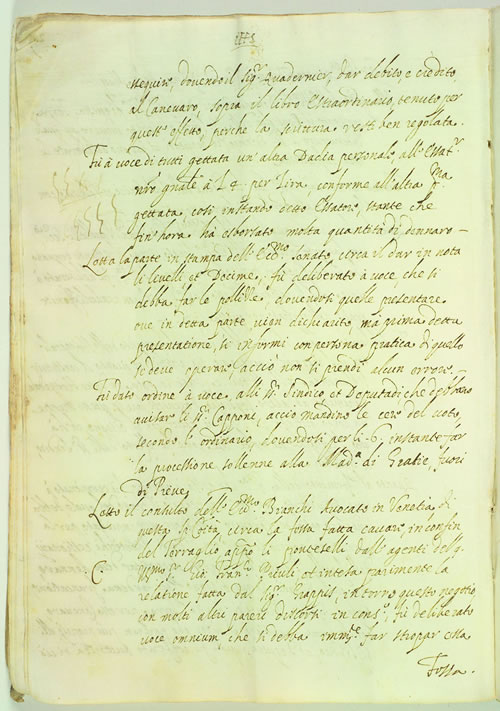 esequire, dovendo il Sig.r Quadernier, dar debito, e credito
al Canevaro, sopra il libro Estraordinario, tenuto per
quest'effetto, perche la scrittura resti ben regolata.
Fù à voce di tutti gettata un'altra Dadia personal, all'Essat.r
nro gnale à L 4. per Tira, conforme all'altra p.ma
gettata, così instando detto Essator, stante che
fin'hora hà esborsato molta quantità di dennaro
Letta la parte in stampa dell'Ecc.mo Senato circa il dar in nota
li livelli, et Decime, fù deliberato à voce, che si
debba far le polizze, dovendosi quelle presentare
ove in detta parte vien dichiarito, mà prima detta
presentatione, si informi con persona pratica di quello
si deve operar, acciò non si prendi alcun errore
Fù dato ordine à voce, alli SS.ri Sindico, et Deputadi che debbano
avisar li SS.ri Capponi, acciò mandino le cere del voto,
secondo l'ordinario, dovendosi per li 6 instante far
la processione sollenne alla Mad.a di Gratie, fuori
di Pieve
Letto il consulto dell'Ecc.mo Branchi Avocato in Venetia di
questa Città circa la fossa fatta cavar, in confin
del Terraglio appo li ponteselli dall'agenti del q.
Gio. Fran.co Piculi, et intesa parimente la
relatione fatta dal Sig.r Grappis, intorno questo negotio
con molti altri pareri discorsi in cons.o, fù deliberato
voce omnium, che si debba imm.te far stropar essa
Fossa.